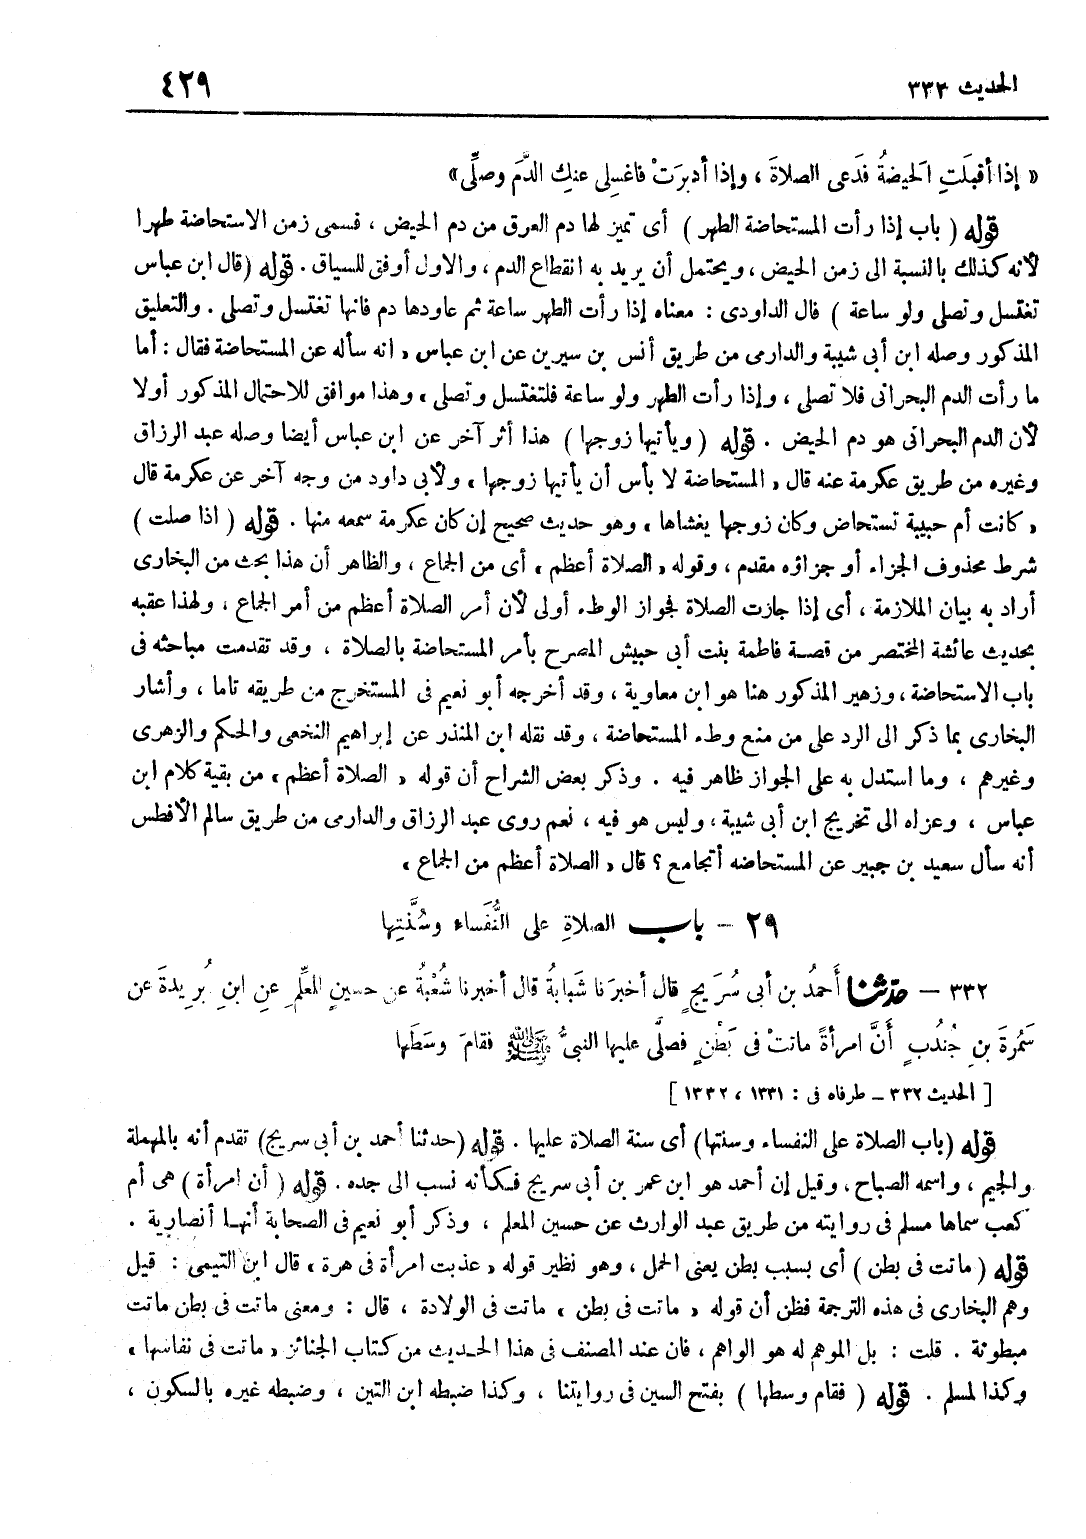 الحديث ٣٣٣ ٤٢٩
« إذا أقبلَتِ الحيضةُ فدَعى الصلاةَ ، وإذا أدبرَتْ فاغسِلى عنكِ الدَّمَ وصلِّى»
قوله ( باب إذا رأت المستحاضة الطهر ) أى تميز لها دم العرق من دم الحيض ، فسمى زمن الاستحاضة طهرا
لأنه كذلك بالنسبة الى زمن الحيض ، ويحتمل أن يريد به انقطاع الدم ، والاول أوفق للسياق . قوله (قال ابن عباس
تغتسل وتصلى ولو ساعة ) قال الداودى : معناه إذا رأت الطهر ساعة ثم عاودها دم فانها تغتسل وتصلى . والتعليق
المذكور وصله ابن أبى شيبة والدارمى من طريق أنس بن سيرين عن ابن عباس « انه سأله عن المستحاضة فقال : أما
ما رأت الدم البحرانى فلا تصلى ، وإذا رأت الطهر ولو ساعة فلتغتسل وتصلى » وهذا موافق للاحتمال المذكور أولا
لأن الدم البحرانى هو دم الحيض . قوله ( ويأتيها زوجها ) هذا أثر آخر عن ابن عباس أيضا وصله عبد الرزاق
وغيره من طريق عكرمة عنه قال « المستحاضة لا بأس أن يأتيها زوجها » ولأبى داود من وجه آخر عن عكرمة قال
« كانت أم حبيبة تستحاض وكان زوجها يغشاها » وهو حديث صحيح إن كان عكرمة سمعه منها . قوله ( اذا صلت )
شرط محذوف الجزاء أو جزاؤه مقدم ، وقوله « الصلاة أعظم » أى من الجماع ، والظاهر أن هذا بحث من البخارى
أراد به بيان الملازمة ، أى إذا جازت الصلاة فجواز الوطء أولى لأن أمر الصلاة أعظم من أمر الجماع ، ولهذا عقبه
بحديث عائشة المختصر من قصة فاطمة بنت أبى حبيش المصرح بأمر المستحاضة بالصلاة ، وقد تقدمت مباحثه فى
باب الاستحاضة ، وزهير المذكور هنا هو ابن معاوية ، وقد أخرجه أبو نعيم فى المستخرج من طريقه تاما ، وأشار
البخارى بما ذكر الى الرد على من منع وطء المستحاضة ، وقد نقله ابن المنذر عن إبراهيم النخعى والحكم والزهرى
وغيرهم ، وما استدل به على الجواز ظاهر فيه . وذكر بعض الشراح أن قوله « الصلاة أعظم » من بقية كلام ابن
عباس ، وعزاه الى تخريج ابن أبى شيبة ، وليس هو فيه ، نعم روى عبد الرزاق والدارمى من طريق سالم الأفطس
أنه سأل سعيد بن جبير عن المستحاضه أتجامع ؟ قال « الصلاة أعظم من الجماع »
٢٩ – باب الصلاةِ على النُّفَساء وسُنَّتِها
٣٣٢ – حدثنا أحمدُ بن أبى سُرَيجٍ قال أخبرَنا شَبابةُ قال أخبرنا شُعْبةُ عن حسينٍ المعلِّمِ عنِ ابنِ بُريدةَ عن
سَمُرةَ بنِ جُندُبٍ أَنَّ امرأةً ماتتْ فى بَطْنٍ فصلَّى عليها النبىُّ ﷺ فقامَ وسَطَها
[ الحديث ٣٣٢ – طرفاه فى : ١٣٣١ ، ١٣٣٢ ]
قوله (باب الصلاة على النفساء وسنتها) أى سنة الصلاة عليها . قوله (حدثنا أحمد بن أبى سريج) تقدم أنه بالمهملة
والجيم ، واسمه الصباح ، وقيل إن أحمد هو ابن عمر بن أبى سريج فكأنه نسب الى جده . قوله ( أن امرأة ) هى أم
كعب سماها مسلم فى روايته من طريق عبد الوارث عن حسين المعلم ، وذكر أبو نعيم فى الصحابة أنها أنصارية .
قوله ( ماتت فى بطن ) أى بسبب بطن يعنى الحمل ، وهو نظير قوله « عذبت امرأة فى هرة » قال ابن التيمى : قيل
وهم البخارى فى هذه الترجمة فظن أن قوله « ماتت فى بطن » ماتت فى الولادة ، قال : ومعنى ماتت فى بطن ماتت
مبطونة . قلت : بل الموهم له هو الواهم ، فان عند المصنف فى هذا الحديث من كتاب الجنائز « ماتت فى نفاسها »
وكذا لمسلم . قوله ( فقام وسطها ) بفتح السين فى روايتنا ، وكذا ضبطه ابن التين ، وضبطه غيره بالسكون ،